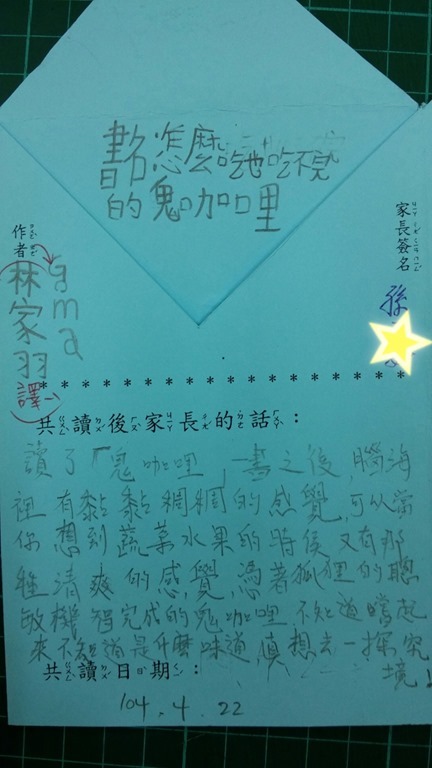 書名怎麼吃也吃不完
的鬼咖哩
家長簽名
孫
作者
林家羽譯
gma
共讀後家長的話:
讀了「鬼咖哩」一書之後,腦海
裡有黏黏稠稠的感覺,可以當
你想到蔬菜水果的時侯又有那
種清爽的感覺,憑著狐狸的聰
敏機智完成的鬼咖哩不知道嚐起
來不知道是什麼味道,真想去一探究
境!
共讀日期:
104.4.22